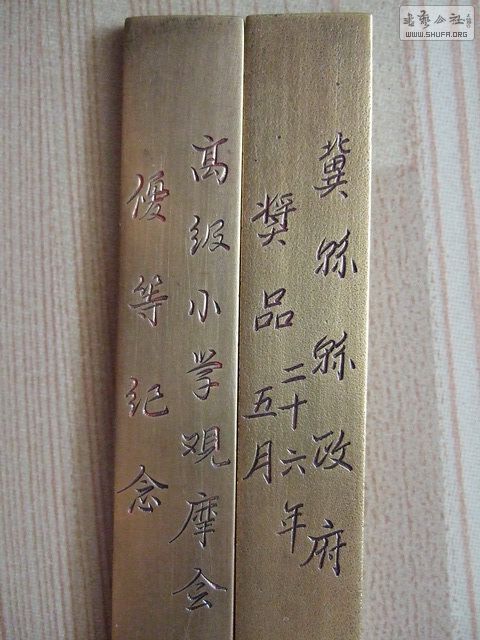 冀縣縣政府
獎品
二十六年
五月
高级小学观摩会
優等紀念
书艺公社
WWW.SHUFA.ORG